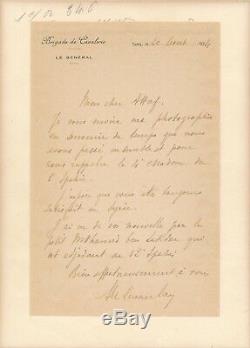 Brigade de Cavalerie
LE GÉNÉRAL
Tunis, le 20 Août
Mon cher
Je vous envoie ma photographie
en souvenir du temps que nous
avons passé ensemble et pour
vous rappeler le 4e escadron du
Spahis
J'espère que vous êtes toujours
satisfait en Syrie.
J'ai eu de vos nouvelles par le
petit Mohamed ben qui
est adjudant au 12e Spahis
Bien affectueusement à vous